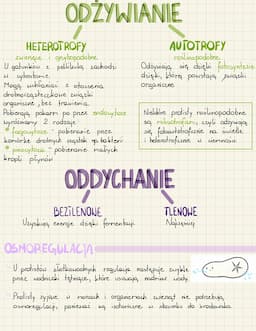 ODŻYWIANIE
HETEROTROFY
zwierzęce i grzybopodobne
U gatunków z pellikulą zachodzi
w cytostomie.
Mogą wchłaniać z otoczenia
drobnocząsteczkowe związki
organiczne, bez trawienia.
Pobierają pokarm po przez endocytozę
wyróżniamy 2 rodzaje
* fagocytoza - pobieranie przez
komórkę drobnych cząstek np. bakterii
* pinocytoza - pobieranie małych
kropli płynów
AUTOTROFY
roślinopodobne
Odżywiają się dzięki fotosyntezie
dzięki, której powstają związki
organiczne
Niektóre protisty roślinopodobne
są miksotrofami, czyli odżywiają
się fotoautotroficznie na świetle
i heterotroficznie w ciemności
ODDYCHANIE
BEZTLENOWE
Uzyskują energię dzięki fermentacji
TLENOWE
Najczęściej
OSMOREGULACJA
U protistów słodkowodnych regulacja następuje zwykle
przez wodniczki tętniące, które usuwają nadmiar wody.
Protisty żyjące w morzach i organizmach zwierząt nie potrzebują
osmoregulacji, ponieważ są izotoniczne w stosunku do środowiska.